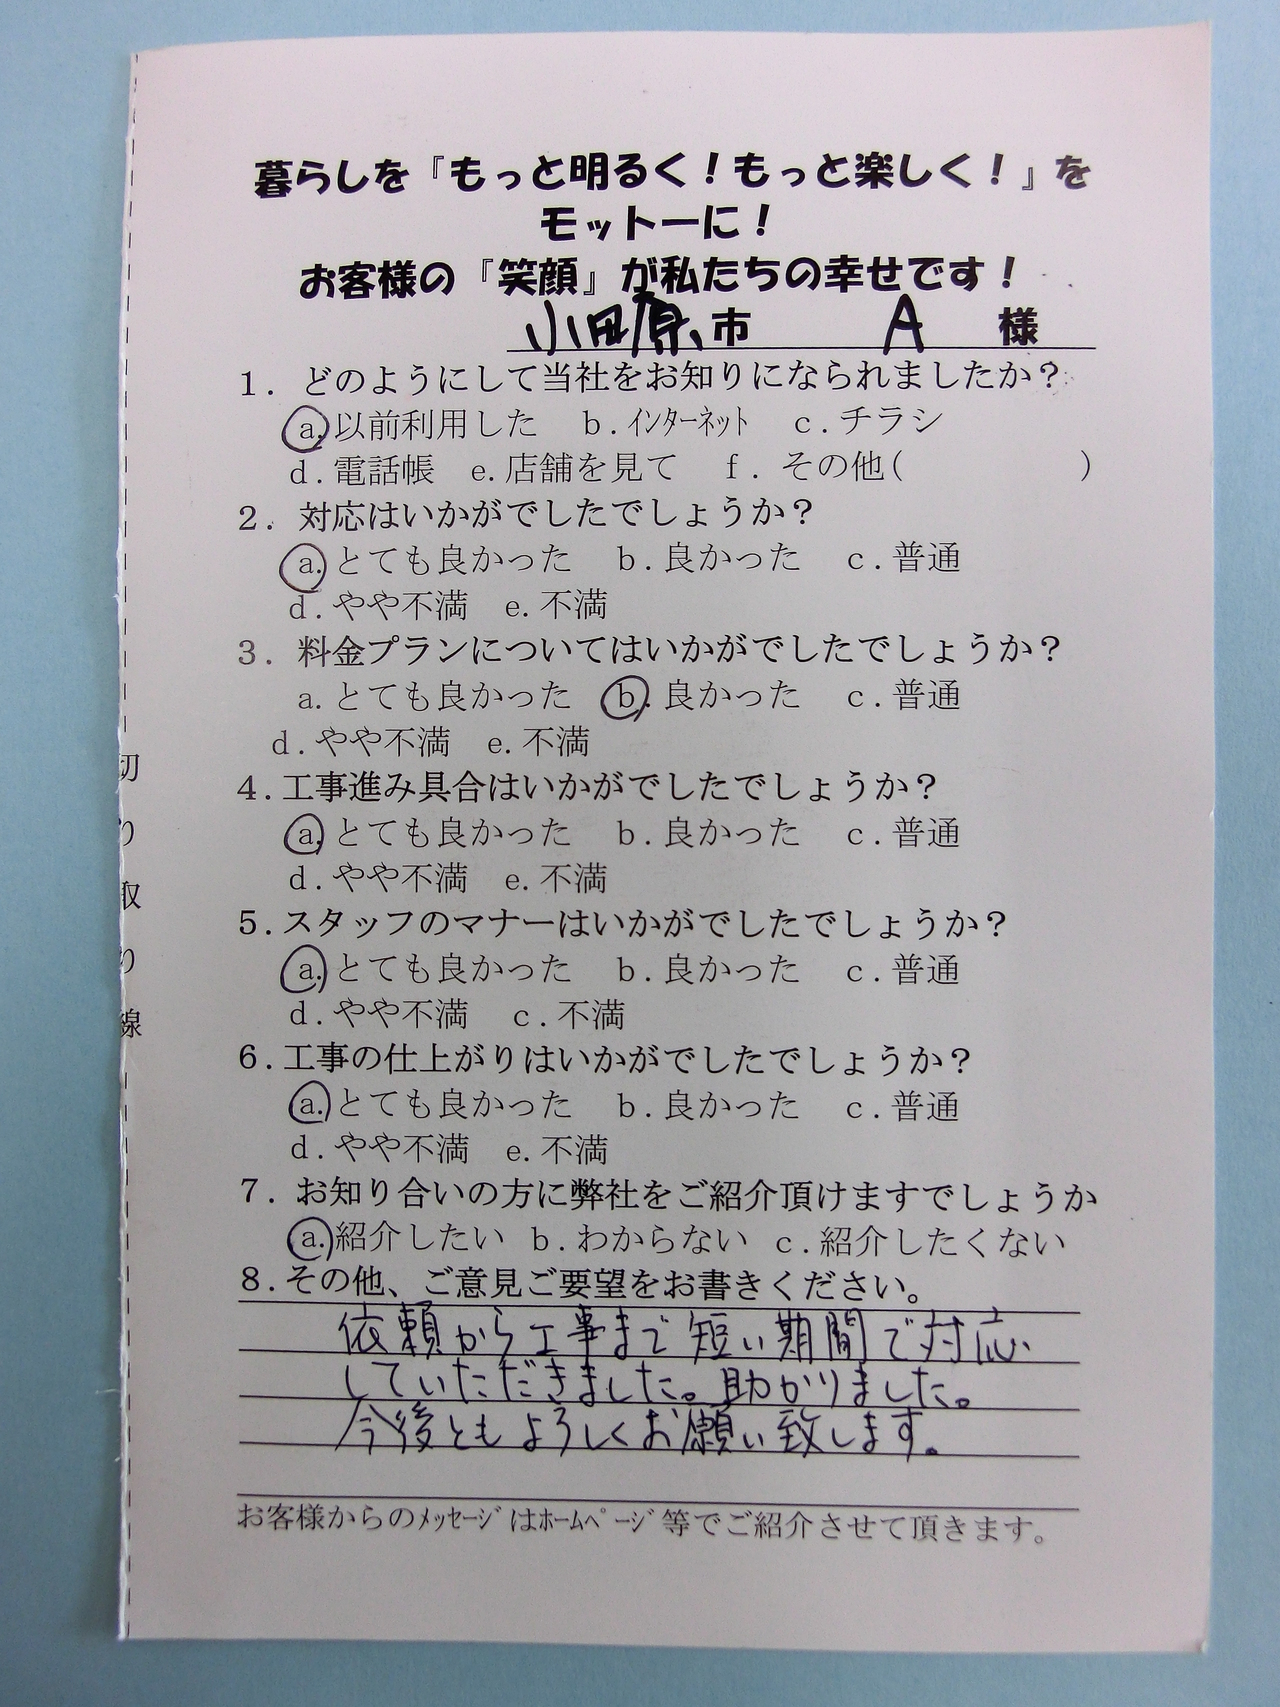 暮らしを『もっと明るく！もっと楽しく！』を
モットーに！
お客様の『笑顔』が私たちの幸せです！
小田原市 A 様
1．どのようにして当社をお知りになられましたか？
a.以前利用した b.ｲﾝﾀｰﾈｯﾄ c.チラシ
d.電話帳 e.店舗を見て f．その他( )
2．対応はいかがでしたでしょうか？
a.とても良かった b.良かった c.普通
d.やや不満 e.不満
3．料金プランについてはいかがでしたでしょうか？
a.とても良かった b.良かった c.普通
d.やや不満 e.不満
4.工事進み具合はいかがでしたでしょうか？
a.とても良かった b.良かった c.普通
d.やや不満 e.不満
5.スタッフのマナーはいかがでしたでしょうか？
a.とても良かった b.良かった c.普通
d.やや不満 c.不満
6.工事の仕上がりはいかがでしたでしょうか？
a.とても良かった b.良かった c.普通
d.やや不満 e.不満
7．お知り合いの方に弊社をご紹介頂けますでしょうか
a.紹介したい b.わからない c.紹介したくない
8.その他、ご意見ご要望をお書きください。
依頼から工事まで短い期間で対応
していただきました。助かりました。
今後ともよろしくお願い致します。
お客様からのﾒｯｾｰｼﾞはﾎｰﾑﾍﾟｰｼﾞ等でご紹介させて頂きます。
切り取り線